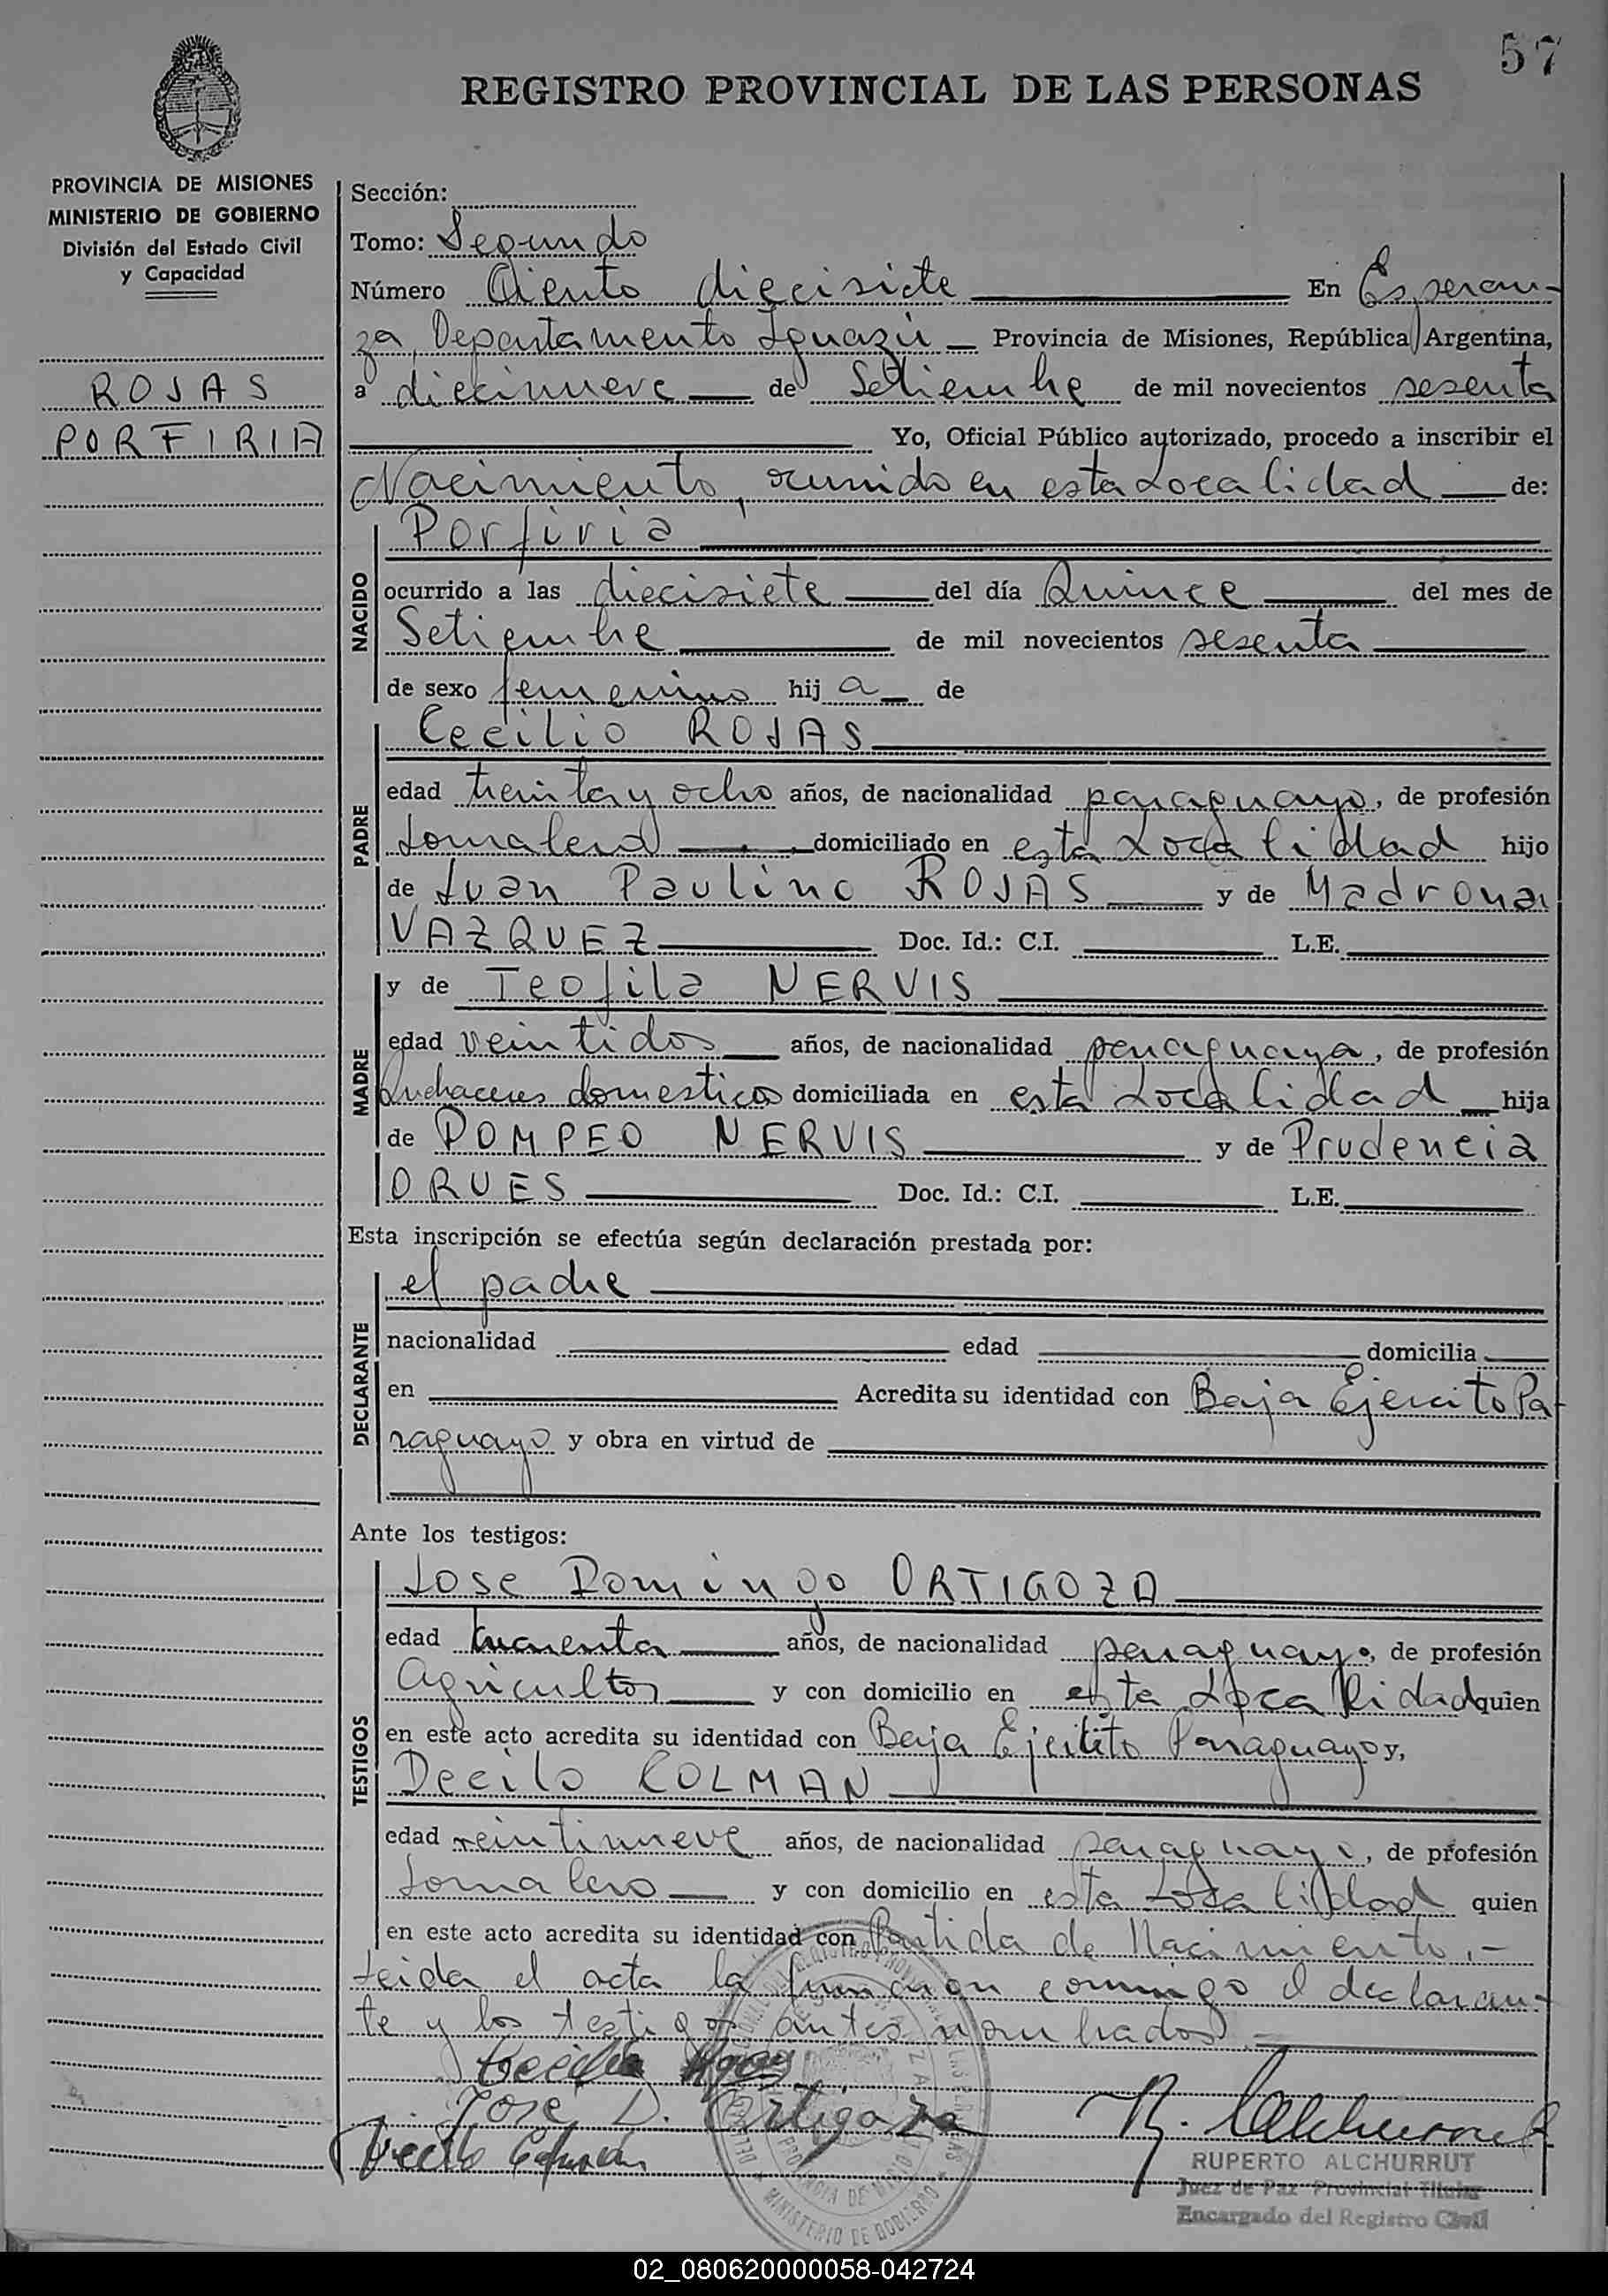 57
REGISTRO PROVINCIAL DE LAS PERSONAS
PROVINCIA DE MISIONES
MINISTERIO DE GOBIERNO
División del Estado Civil
y Capacidad
ROJAS
PORFIRIA
Sección:
Tomo: Segundo
Número Ciento diecisiete En Esperan-
za, Departamento Iguazú Provincia de Misiones, República Argentina,
a diecinueve de Setiembre de mil novecientos sesenta
Yo, Oficial Público autorizado, procedo a inscribir el
Nacimiento, en esta Localidad de:
NACIDO
Porfiria
ocurrido a las diecisiete del día Quince del mes de
Setiembre de mil novecientos sesenta
de sexo femenino hija de
PADRE
Cecilio ROJAS
edad treinta y ocho años, de nacionalidad paraguayo, de profesión
Jornalero domiciliado en esta Localidad hijo
de Juan Paulino ROJAS y de Madrona
VAZQUEZ Doc. Id.: C.I. L.E.
MADRE
y de Teofila NERVIS
edad veintidos años, de nacionalidad paraguaya, de profesión
Quehaceres domesticos domiciliada en esta Localidad hija
de POMPEO NERVIS y de Prudencia
ORUES Doc. Id.: C.I. L.E.
Esta inscripción se efectúa según declaración prestada por:
DECLARANTE
el padre
nacionalidad edad domicilia
en Acredita su identidad con Baja Ejercito Pa-
raguayo y obra en virtud de
Ante los testigos:
TESTIGOS
Jose Domingo ORTIGOZA
edad años, de nacionalidad paraguayo, de profesión
Agricultor y con domicilio en esta Localidad quien
en este acto acredita su identidad con Baja Ejercito Paraguayo y,
Decilo COLMAN
edad veintinueve años, de nacionalidad paraguayo, de profesión
Jornalero y con domicilio en esta Localidad quien
en este acto acredita su identidad con Partida de Nacimiento.-
Leida el acta la firman conmigo el declaran-
te y los testigos antes nombrados.
Jose D. Ortigoza
R. Alchurrut
RUPERTO ALCHURRUT
Juez de Paz Provincial Titular
Encargado del Registro Civil
MINISTERIO DE GOBIERNO
02_080620000058-042724